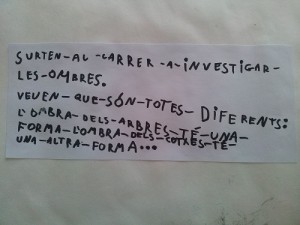 SURTEN-AL-CARRER-A-INVESTIGAR-
LES-OMBRES.
VEUEN-QUE-SÓN-TOTES-DIFERENTS:
L'OMBRA-DELS-ARBRES-TÉ-UNA-
FORMA-L'OMBRA-DELS-COTXES-TÉ-
UNA-ALTRA-FORMA...